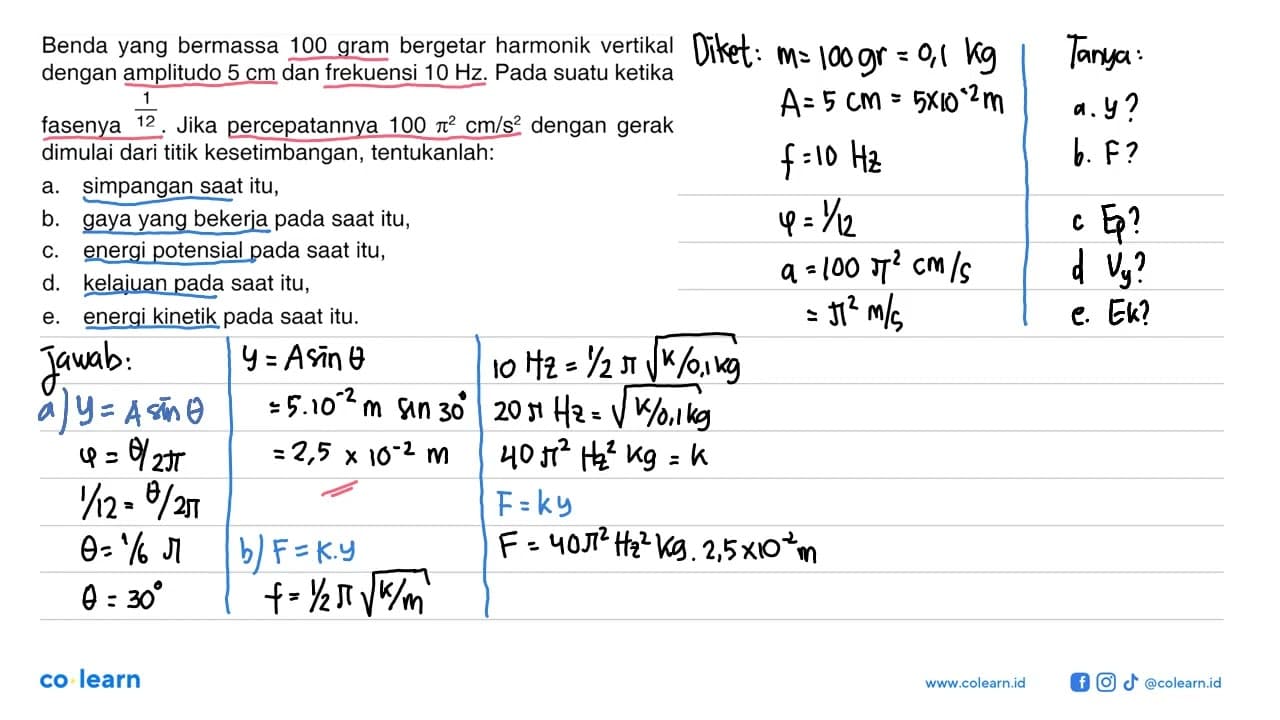 Benda yang bermassa 100 gram bergetar harmonik vertikal
dengan amplitudo 5 cm dan frekuensi 10 Hz. Pada suatu ketika
fasenya 1/12. Jika percepatannya 100 π² cm/s² dengan gerak
dimulai dari titik kesetimbangan, tentukanlah:
a. simpangan saat itu,
b. gaya yang bekerja pada saat itu,
c. energi potensial pada saat itu,
d. kelajuan pada saat itu,
e. energi kinetik pada saat itu.
Diket: m = 100 gr = 0,1 kg
A = 5 cm = 5x10⁻² m
f = 10 Hz
φ = 1/12
a = 100 π² cm/s
= π² m/s
Tanya:
a. y?
b. F?
c Ep?
d Vy?
e. Ek?
Jawab:
a) y = A sin θ
φ = θ/2π
1/12 = θ/2π
θ = 1/6 π
θ = 30°
y = A sin θ
= 5.10⁻² m sin 30°
= 2,5 x 10⁻² m
b) F = K.y
f = 1/2 π √k/m
10 Hz = 1/2 π √k/0,1 kg
20 π Hz = √k/0,1 kg
40 π² Hz² kg = k
F = ky
F = 40π² Hz² kg. 2,5x10⁻² m
co learn
www.colearn.id
@colearn.id